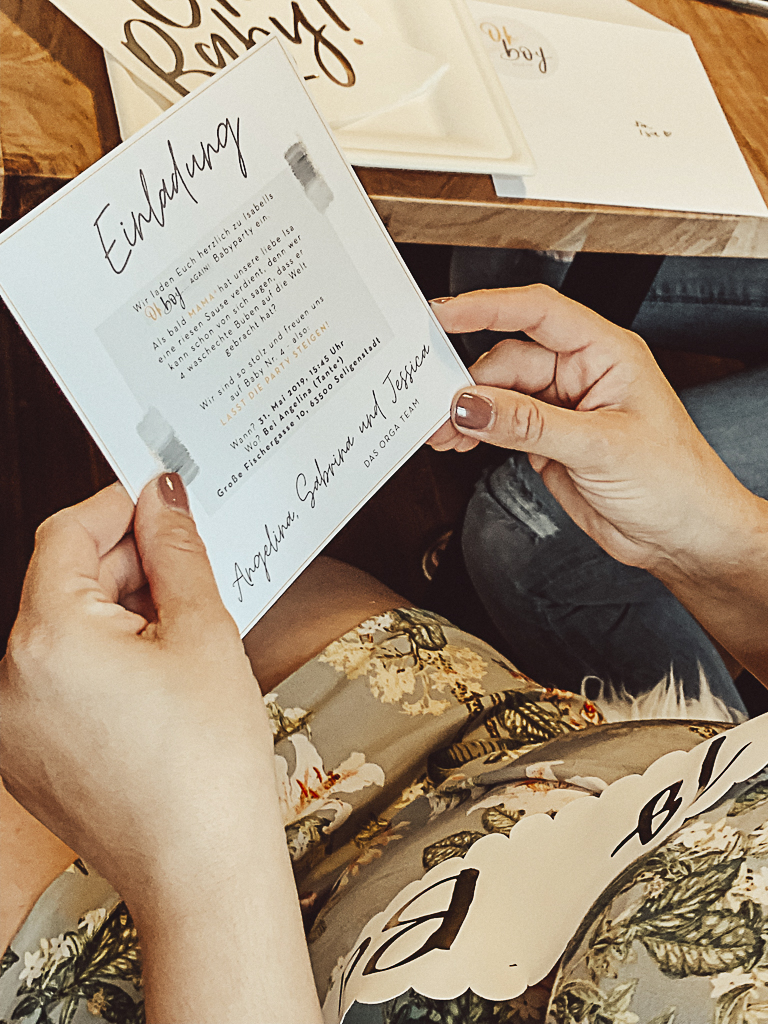 Baby!
Oh
boy
Einladung
Wir laden Euch herzlich zu Isabells
Oh boy AGAIN! Babyparty ein.
Als bald MAMA hat unsere liebe Isa
eine riesen Sause verdient, denn wer
kann schon von sich sagen, dass er
4 waschechte Buben auf die Welt
gebracht hat?
Wir sind so stolz und freuen uns
auf Baby Nr. 4, also:
LASST DIE PARTY STEIGEN!
Wann? 31. Mai 2019, 15:45 Uhr
Wo? Bei Angelina (Tante)
Große Fischergasse 10, 63500 Seligenstadt
Angelina, Sabrina und Jessica
DAS ORGA TEAM